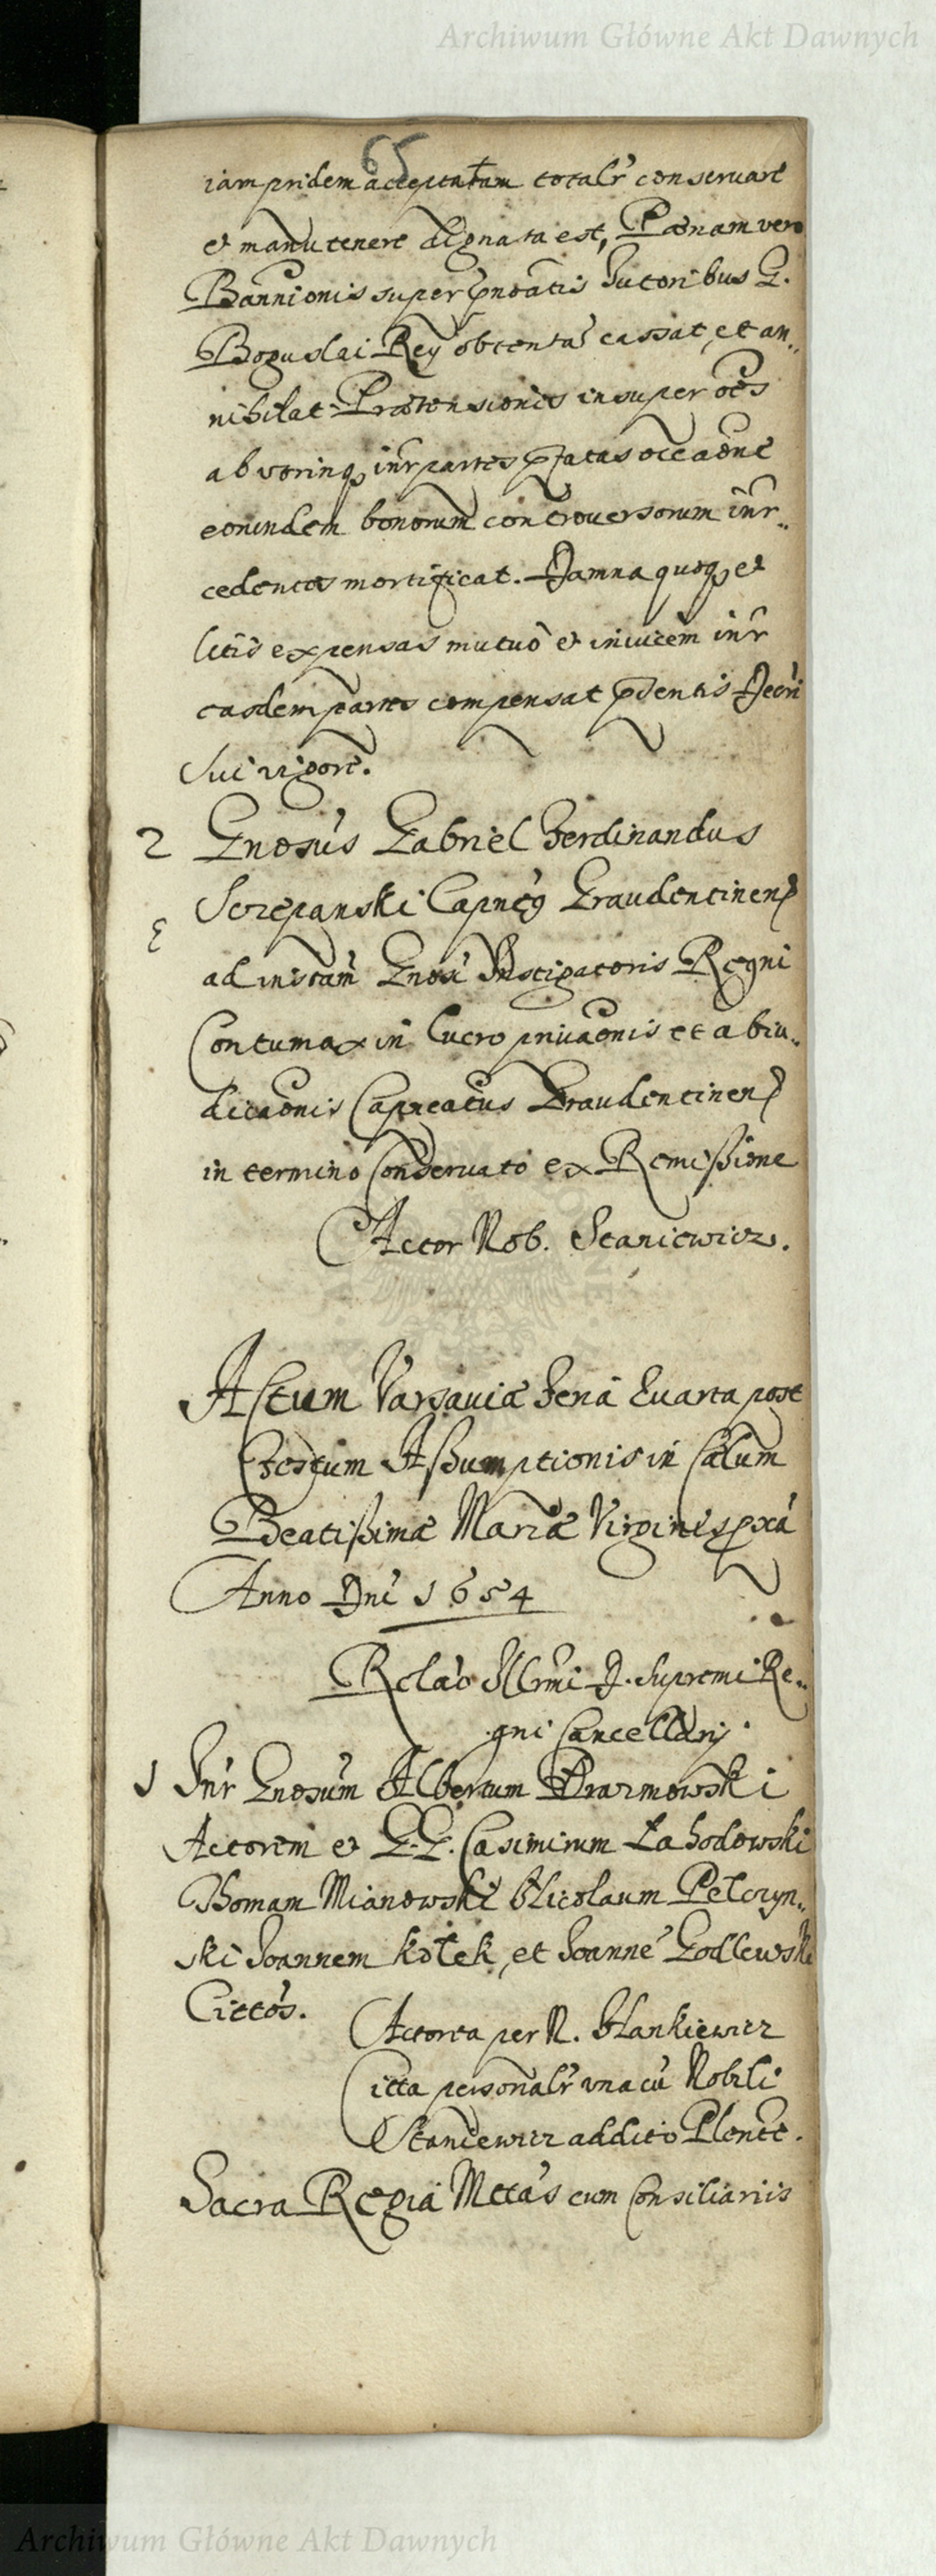 Archiwum Główne Akt Dawnych
65
iam pridem acceptatam totalr conseruare
et manutenere dignata est, Pænam vero
Bannionis super pnoatis Tutoribus G.
Boguslai Rey obtentã cassat, et an„
nihilat. Prætensiones insuper oẽs
ab vtrinq inr partes pfatas occaõne
eorundem bonorum controuersorum inr„
cedentes mortificat. Damna quoq et
litis expensas mutuo et inuicem inr
easdem partes compensat pñtis Decri
sui vigore.
2 Gnosus Gabriel Ferdinandus
Szczepanski Capneg Graudentinen
ad instam Gnosi Instigatoris Regni
Contumax in lucro priuaõnis et abiu„
dicaõnis Capneatus Graudentinen
in termino Conseruato ex Remissione
Actor Nob. Staniewicz.
Actum Varsauiæ Feria Quarta post
Festum Assumptionis in Cælum
Beatissimæ Mariæ Virginis pxa
Anno Dni 1654
Relaõ Illrmi D. Supremi Re„
gni Cancellarij
1 Inr Gnosum Albertum Prazmowski
Actorem et G.G. Casimirum Łahodowski
Thomam Mianowski Nicolaum Pelczyn„
ski Ioannem Kotek, et Ioannẽ Godlewski
Cittos.
Actorea per N. Hankiewicz
Citta personalr vna cũ Nobili
Staniewicz addito Plente.
Sacra Regia Mttas cum Consiliariis
Archiwum Główne Akt Dawnych